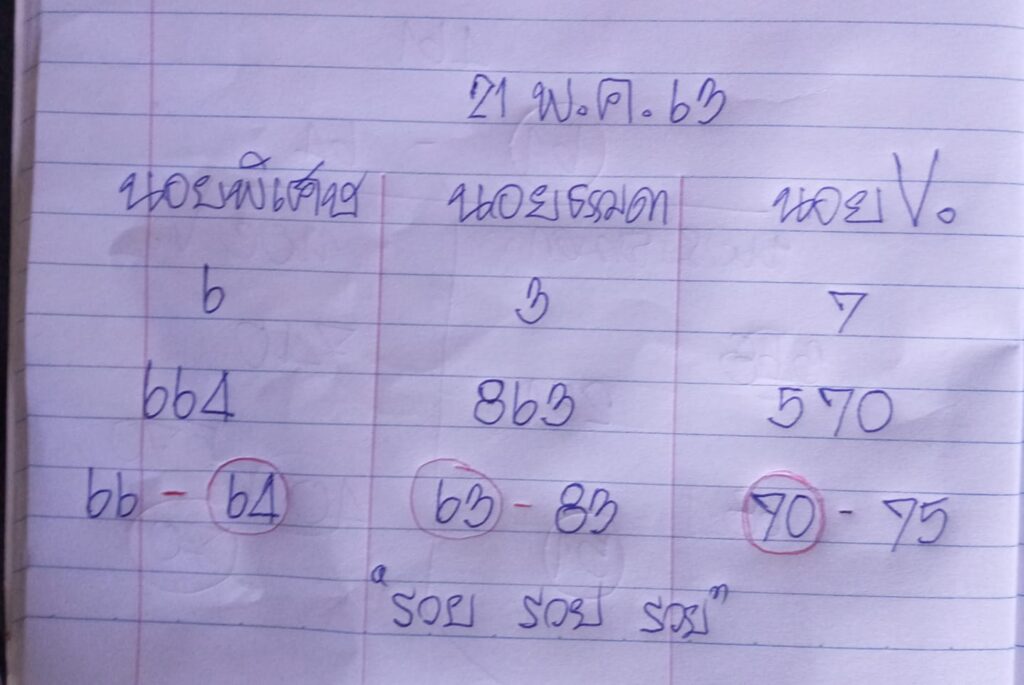 21 พ.ค. 63
นอยพิเศษ นอยธรรมดา นอย V.
6 3 7
664 863 570
66 - 64 63 - 83 70 - 75
"รวย รวย รวย"